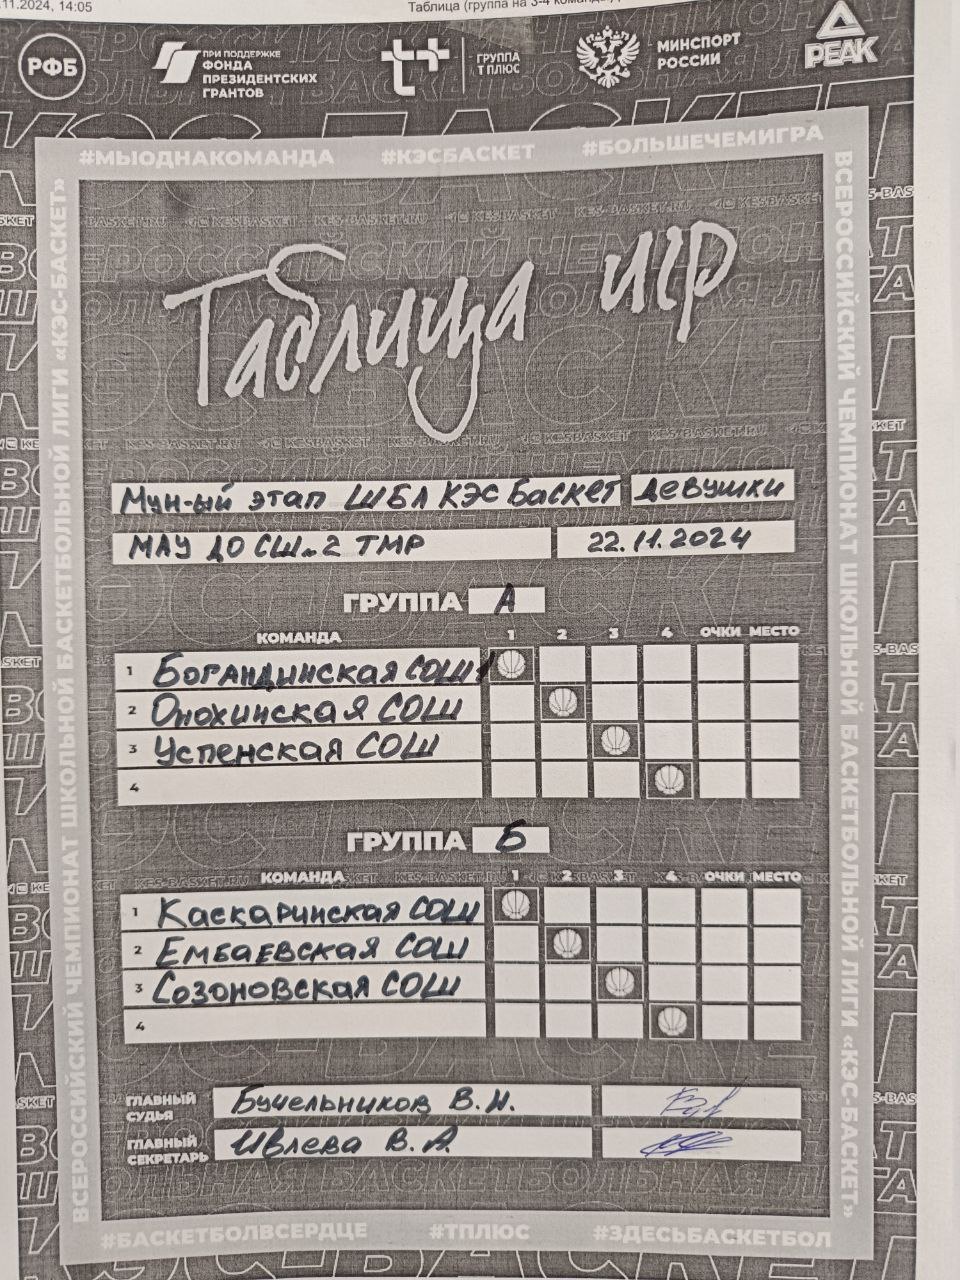 .11.2024, 14:05
Таблица (группа на 3-4 команды)
РФБ
ПРИ ПОДДЕРЖКЕ
ФОНДА
ПРЕЗИДЕНТСКИХ
ГРАНТОВ
ГРУППА
Т ПЛЮС
МИНСПОРТ
РОССИИ
PEAK
#МЫОДНАКОМАНДА #КЭСБАСКЕТ #БОЛЬШЕЧЕМИГРА
ВСЕРОССИЙСКИЙ ЧЕМПИОНАТ ШКОЛЬНОЙ БАСКЕТБОЛЬНОЙ ЛИГИ «КЭС-БАСКЕТ»
ВСЕРОССИЙСКИЙ ЧЕМПИОНАТ ШКОЛЬНОЙ БАСКЕТБОЛЬНОЙ ЛИГИ «КЭС-БАСКЕТ»
Таблица игр
Мун-ый этап ШБЛ КЭС Баскет девушки
МАУ ДО СШ№2 ТМР 22.11.2024
ГРУППА А
КОМАНДА 1 2 3 4 ОЧКИ МЕСТО
1 Богандинская СОШ 1
2 Онохинская СОШ
3 Успенская СОШ
4
ГРУППА Б
КОМАНДА 1 2 3 4 ОЧКИ МЕСТО
1 Каскаринская СОШ
2 Ембаевская СОШ
3 Созоновская СОШ
4
ГЛАВНЫЙ
СУДЬЯ
Бучельников В.Н.
ГЛАВНЫЙ
СЕКРЕТАРЬ
Ивлева В.А.
#БАСКЕТБОЛВСЕРДЦЕ #ТПЛЮС #ЗДЕСЬБАСКЕТБОЛ